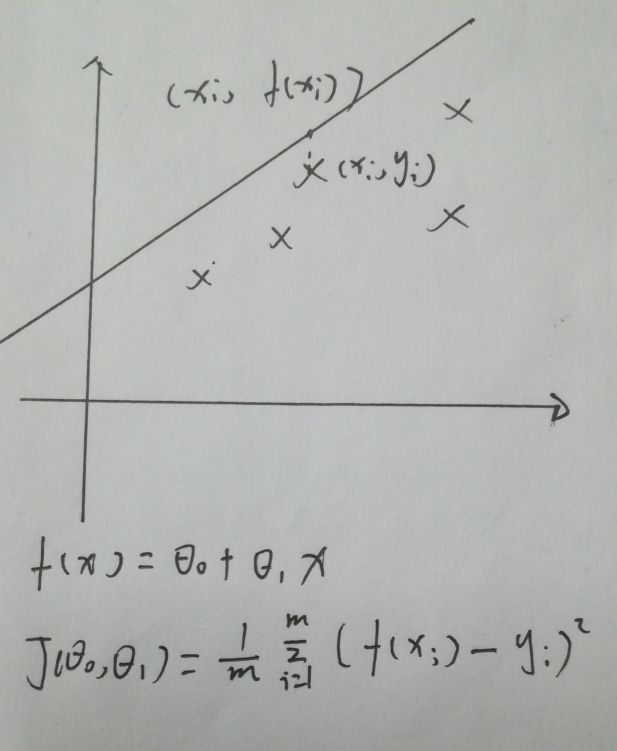 (xi, f(xi))
(xi, yi)
f(x) = θ₀ + θ₁ x
J(θ₀, θ₁) = 1/m Σ_{i=1}^{m} (f(xi) - yi)²